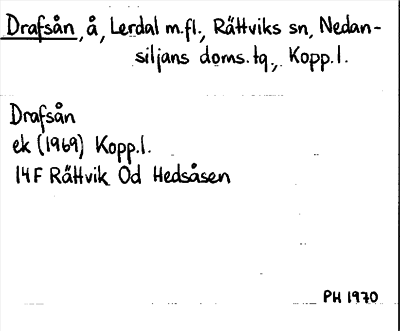 Drafsån, å, Lerdal m.fl., Rättviks sn, Nedan-
siljans doms.tg., Kopp.l.
Drafsån
ek (1969) Kopp.l.
14F Rättvik Od Hedsåsen
PH 1970